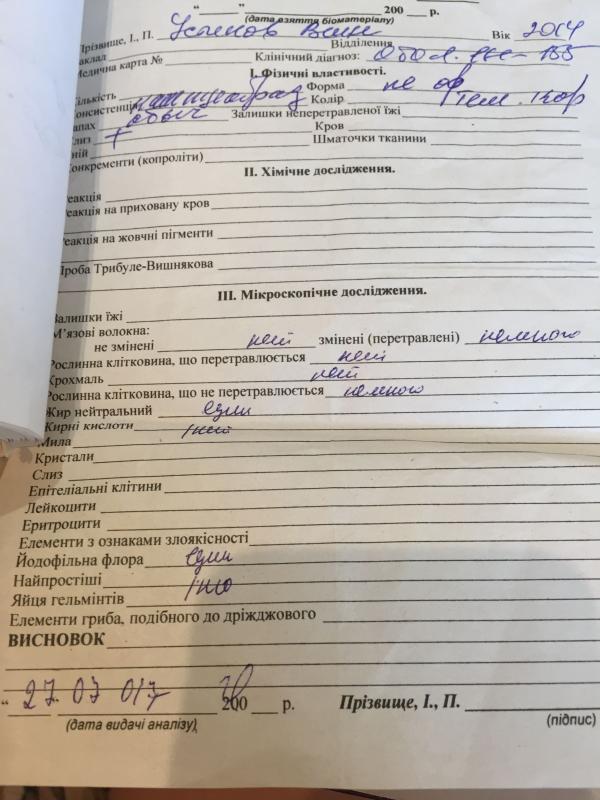 “ ” 200 р.
(дата взяття біоматеріалу)
Прізвище, І., П. Вік 2014
Заклад Відділення
Медична карта № Клінічний діагноз:
І. Фізичні властивості.
Кількість Форма не оф
Консистенція Колір тем. кор
Запах Залишки неперетравленої їжі
Слиз + Кров
Гній Шматочки тканини
Конкременти (копроліти)
ІІ. Хімічне дослідження.
Реакція
Реакція на приховану кров
Реакція на жовчні пігменти
Проба Трибуле-Вишнякова
ІІІ. Мікроскопічне дослідження.
Залишки їжі
М’язові волокна:
не змінені нет змінені (перетравлені) немного
Рослинна клітковина, що перетравлюється нет
Крохмаль нет
Рослинна клітковина, що не перетравлюється немного
Жир нейтральний един
Жирні кислоти
Мила нет
Кристали
Слиз
Епітеліальні клітини
Лейкоцити
Еритроцити
Елементи з ознаками злоякісності
Йодофільна флора един
Найпростіші
Яйця гельмінтів
Елементи гриба, подібного до дріжджового
ВИСНОВОК
“ 27. 07 017 200 р. Прізвище, І., П.
(дата видачі аналізу) (підпис)